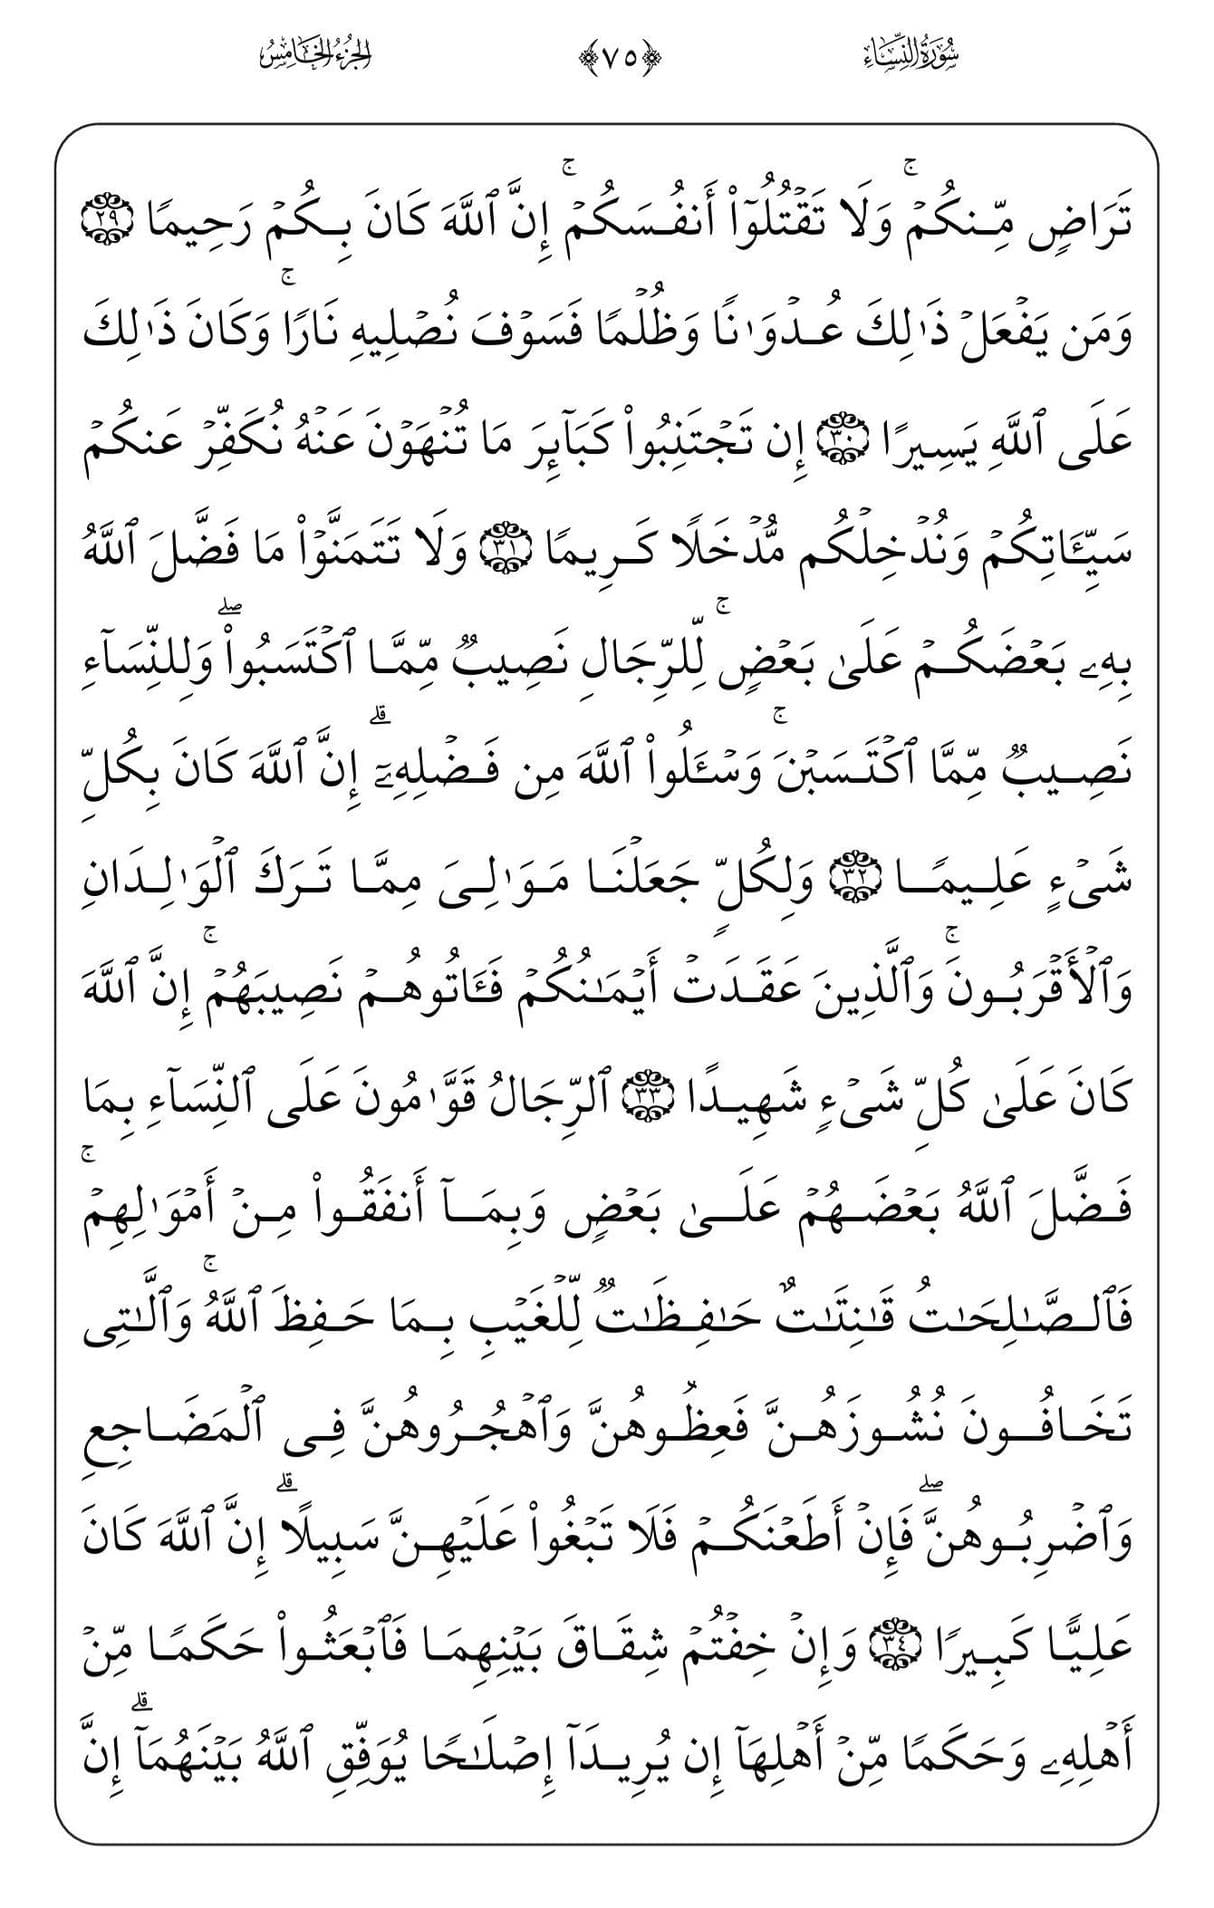 سُورَةُ النِّسَاءِ ٧٥ الجُزْءُ الخَامِسُ
تَرَاضٍ مِّنكُمْۚ وَلَا تَقْتُلُوٓا۟ أَنفُسَكُمْۚ إِنَّ ٱللَّهَ كَانَ بِكُمْ رَحِيمًا ٢٩
وَمَن يَفْعَلْ ذَٰلِكَ عُدْوَٰنًا وَظُلْمًا فَسَوْفَ نُصْلِيهِ نَارًاۚ وَكَانَ ذَٰلِكَ
عَلَى ٱللَّهِ يَسِيرًا ٣٠ إِن تَجْتَنِبُوا۟ كَبَآئِرَ مَا تُنْهَوْنَ عَنْهُ نُكَفِّرْ عَنكُمْ
سَيِّـَٔاتِكُمْ وَنُدْخِلْكُم مُّدْخَلًا كَرِيمًا ٣١ وَلَا تَتَمَنَّوْا۟ مَا فَضَّلَ ٱللَّهُ
بِهِۦ بَعْضَكُمْ عَلَىٰ بَعْضٍۚ لِّلرِّجَالِ نَصِيبٌ مِّمَّا ٱكْتَسَبُوا۟ۖ وَلِلنِّسَآءِ
نَصِيبٌ مِّمَّا ٱكْتَسَبْنَۚ وَسْـَٔلُوا۟ ٱللَّهَ مِن فَضْلِهِۦٓۗ إِنَّ ٱللَّهَ كَانَ بِكُلِّ
شَىْءٍ عَلِيمًا ٣٢ وَلِكُلٍّ جَعَلْنَا مَوَٰلِىَ مِمَّا تَرَكَ ٱلْوَٰلِدَانِ
وَٱلْأَقْرَبُونَۚ وَٱلَّذِينَ عَقَدَتْ أَيْمَـٰنُكُمْ فَـَٔاتُوهُمْ نَصِيبَهُمْۚ إِنَّ ٱللَّهَ
كَانَ عَلَىٰ كُلِّ شَىْءٍ شَهِيدًا ٣٣ ٱلرِّجَالُ قَوَّٰمُونَ عَلَى ٱلنِّسَآءِ بِمَا
فَضَّلَ ٱللَّهُ بَعْضَهُمْ عَلَىٰ بَعْضٍ وَبِمَآ أَنفَقُوا۟ مِنْ أَمْوَٰلِهِمْۚ
فَٱلصَّـٰلِحَـٰتُ قَـٰنِتَـٰتٌ حَـٰفِظَـٰتٌ لِّلْغَيْبِ بِمَا حَفِظَ ٱللَّهُۚ وَٱلَّـٰتِى
تَخَافُونَ نُشُوزَهُنَّ فَعِظُوهُنَّ وَٱهْجُرُوهُنَّ فِى ٱلْمَضَاجِعِ
وَٱضْرِبُوهُنَّۖ فَإِنْ أَطَعْنَكُمْ فَلَا تَبْغُوا۟ عَلَيْهِنَّ سَبِيلًاۗ إِنَّ ٱللَّهَ كَانَ
عَلِيًّا كَبِيرًا ٣٤ وَإِنْ خِفْتُمْ شِقَاقَ بَيْنِهِمَا فَٱبْعَثُوا۟ حَكَمًا مِّنْ
أَهْلِهِۦ وَحَكَمًا مِّنْ أَهْلِهَآ إِن يُرِيدَآ إِصْلَـٰحًا يُوَفِّقِ ٱللَّهُ بَيْنَهُمَآۗ إِنَّ